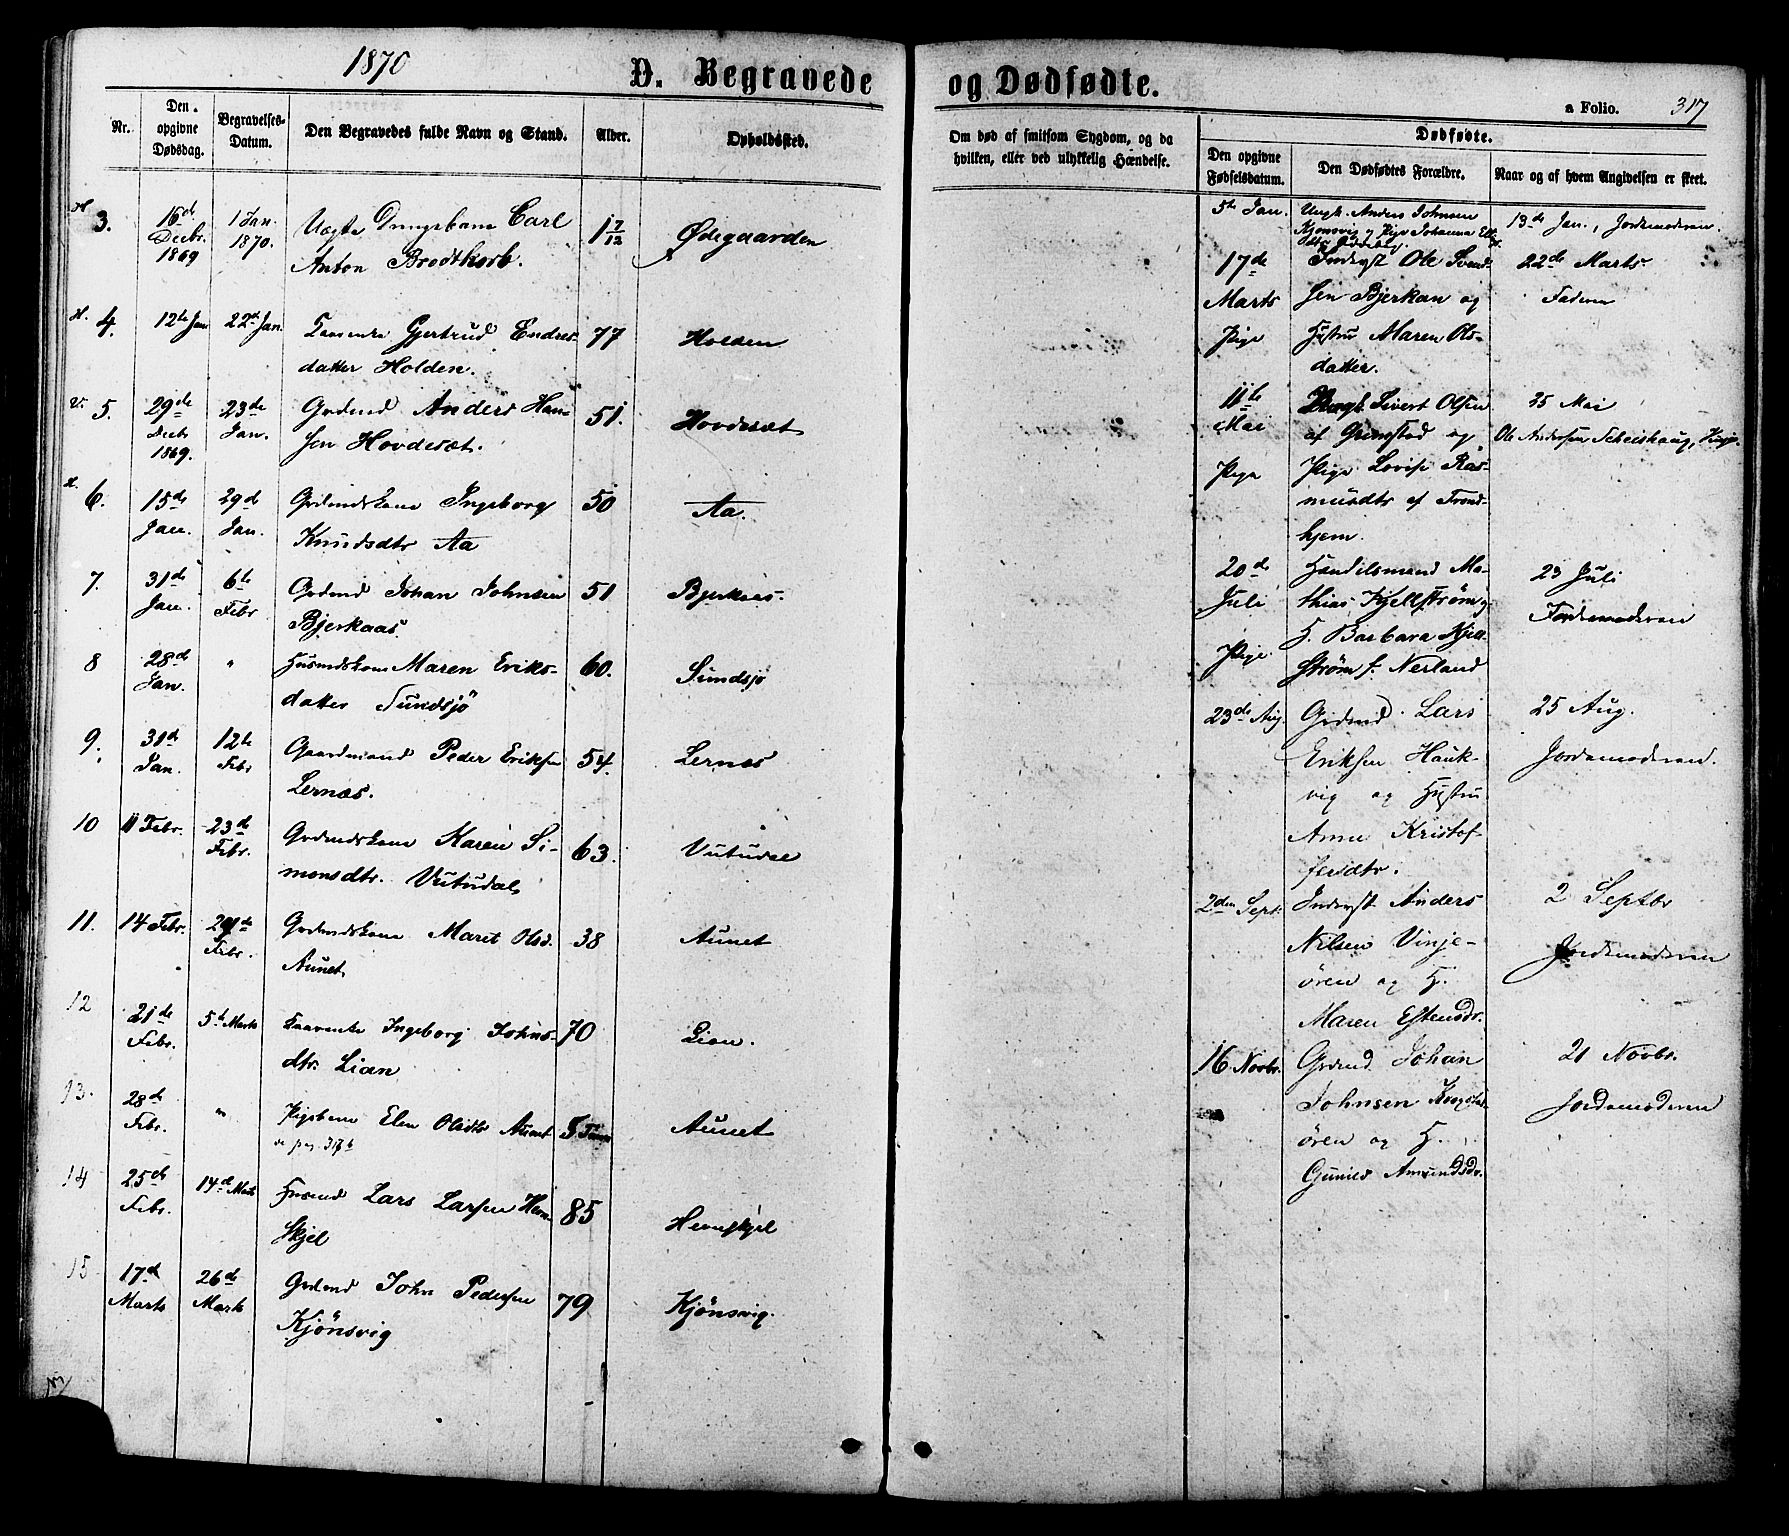 1870
D. Begravede og Dødfødte.
a Folio. 317
Nr.
Den opgivne Dødsdag.
Begravelses-Datum.
Den Begravedes fulde Navn og Stand.
Alder.
Opholdssted.
Om død af smitsom Sygdom, og da hvilken, eller ved ulykkelig Hændelse.
Dødfødte.
Den opgivne Fødselsdatum.
Den Dødfødtes Forældre.
Naar og af hvem Angivelsen er skeet.
H. 3. 16de Decbr. 1869 1 Jan. 1870. Uægte Drengebarn Carl 1 7/12 Ødegaarden
Anton Brodtkorb.
H. 4. 12te Jan 22de Jan. Gjertrud Endres- 77 Holden
datter Holden.
V. 5. 29de Decbr 1869. 23de Jan. Grdmd Anders Han- 51. Hovdesæt
sen Hovdesæt.
6. 15de Jan. 29de Jan. Grdmdskone Ingeborg 50 Aa.
Knudsdtr Aa
7. 31de Jan. 6te Febr Grdmd Johan Johnsen 51 Bjerkaas.
Bjerkaas
8 28de Jan. " Husmdskone Maren Eriks- 60. Sundsjö
datter Sundsjö
9. 31de Jan. 12te Febr Gaardmand Peder Eriksen 54. Lernæs
Lernæs.
10 11 Febr. 23de Febr. Grdmdskone Karen Si- 63. Vutudal
monsdtr. Vutudal
11. 14 Febr. Febr. Grdmdskone Marit Olsd. 38 Aunet
Aunet.
12 21de Febr. 5te Marts Ingeborg Johns- 70 Lian.
dtr. Lian
13. 28de Febr. " Pigebarn Elen Olsdtr Aunet Aunet
14 25de Febr. 14de Marts Husmd Lars Larsen Hem- 85 Hemskjel
skjel
15 17de Marts 26de Marts Grdmd John Pedersen 79 Kjönsvig.
Kjönsvig
5te Jan. Ungk. Anders Johnsen 13de Jan., Jordemoderen.
Kjönsvig og Pige Johanna
17de Inderst Ole Svend- 22de Marts.
Marts sen Bjerkan og Faderen
Pige Hustru Maren Ols-
datter.
11te Mai Ungk. Sivert Olsen 25 Mai
af Grimstad og Ole Andersen
Pige Pige Lovise Ras-
musdtr af Trond-
hjem.
20de Handelsmand Ma- 23 Juli
Juli thias Kjellstrøm og Jordemoderen
H. Barbara Kjell-
Pige. strøm f. Nerland
23de Aug. Grdmd Lars 25 Aug.
Eriksen Hauk- Jordemoderen.
vig og Hustru
Anne Kristof-
fersdtr.
2den Sept. Inderst Anders 2 Septbr
Nilsen Vinje- Jordemoderen
ören og H.
Maren Estensdr.
16 Novbr. Grdmd Johan 21 Novbr.
Johnsen Jordemoderen
ören og H.
Gunild Amundsdr.